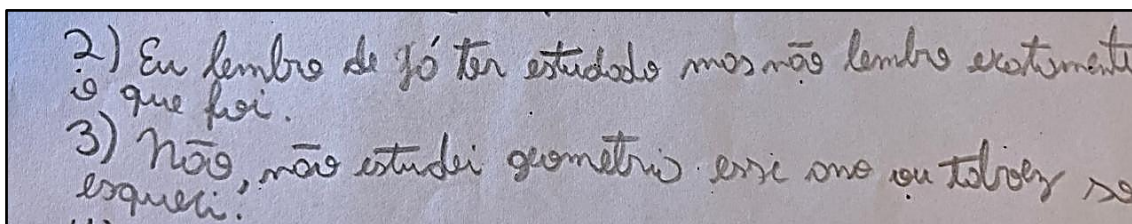 2) Eu lembro de já ter estudado mas não lembro exatamente
o que foi.
3) Não, não estudei geometria esse ano ou talvez só
esqueci.